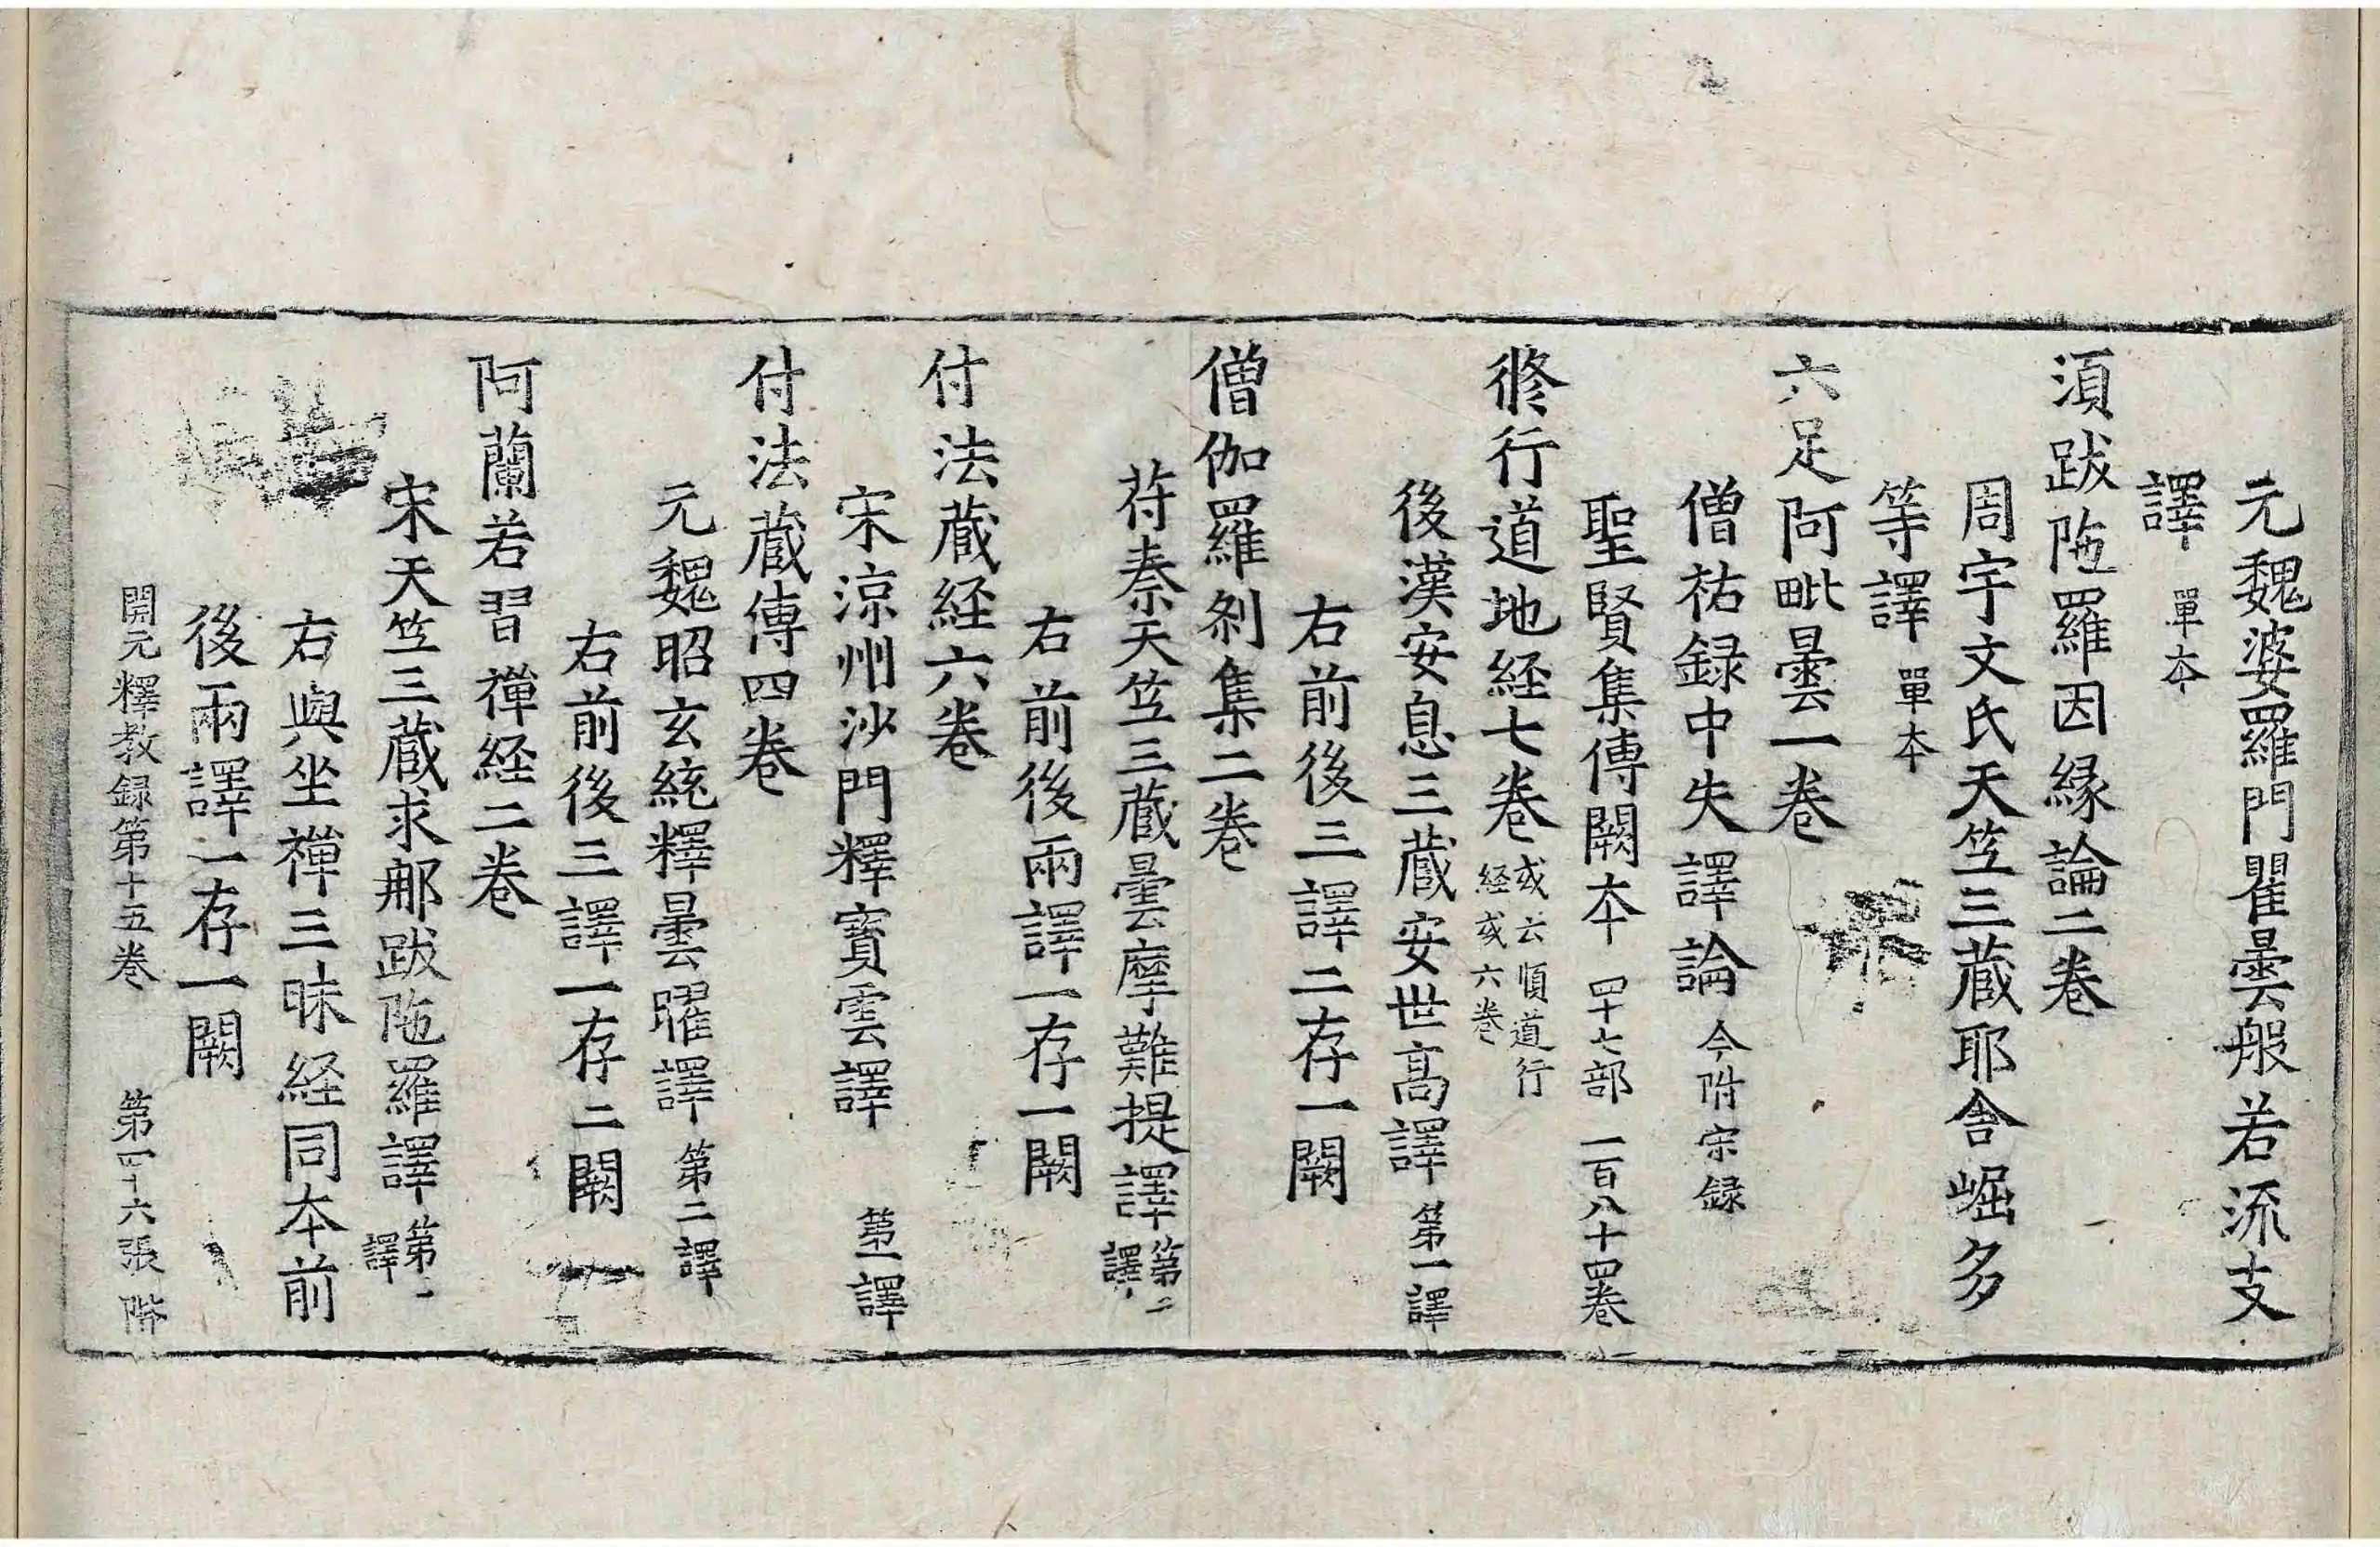 元魏婆羅門瞿曇般若流支
譯 單本
須跋陁羅因縁論二卷
周宇文氏天笁三蔵耶舎崛多
等譯 單本
六足阿毗曇一卷
僧祐録中失譯論 今附宋録
聖賢集傳闕本 四十七部 一百八十四卷
修行道地経七卷 或云順道行経或六卷
後漢安息三蔵安世高譯 第一譯
右前後三譯二存一闕
僧伽羅剎集二卷
苻秦天笁三蔵曇摩難提譯 第二譯
右前後兩譯一存一闕
付法蔵経六卷
宋涼州沙門釋寳雲譯 第一譯
付法蔵傳四卷
元魏昭玄統釋曇曜譯 第二譯
右前後三譯一存二闕
阿蘭若習禪経二卷
宋天笁三蔵求那跋陁羅譯 第一譯
右與坐禪三昧経同本前
後兩譯一存一闕
開元釋教録第十五卷 第四十六張 階